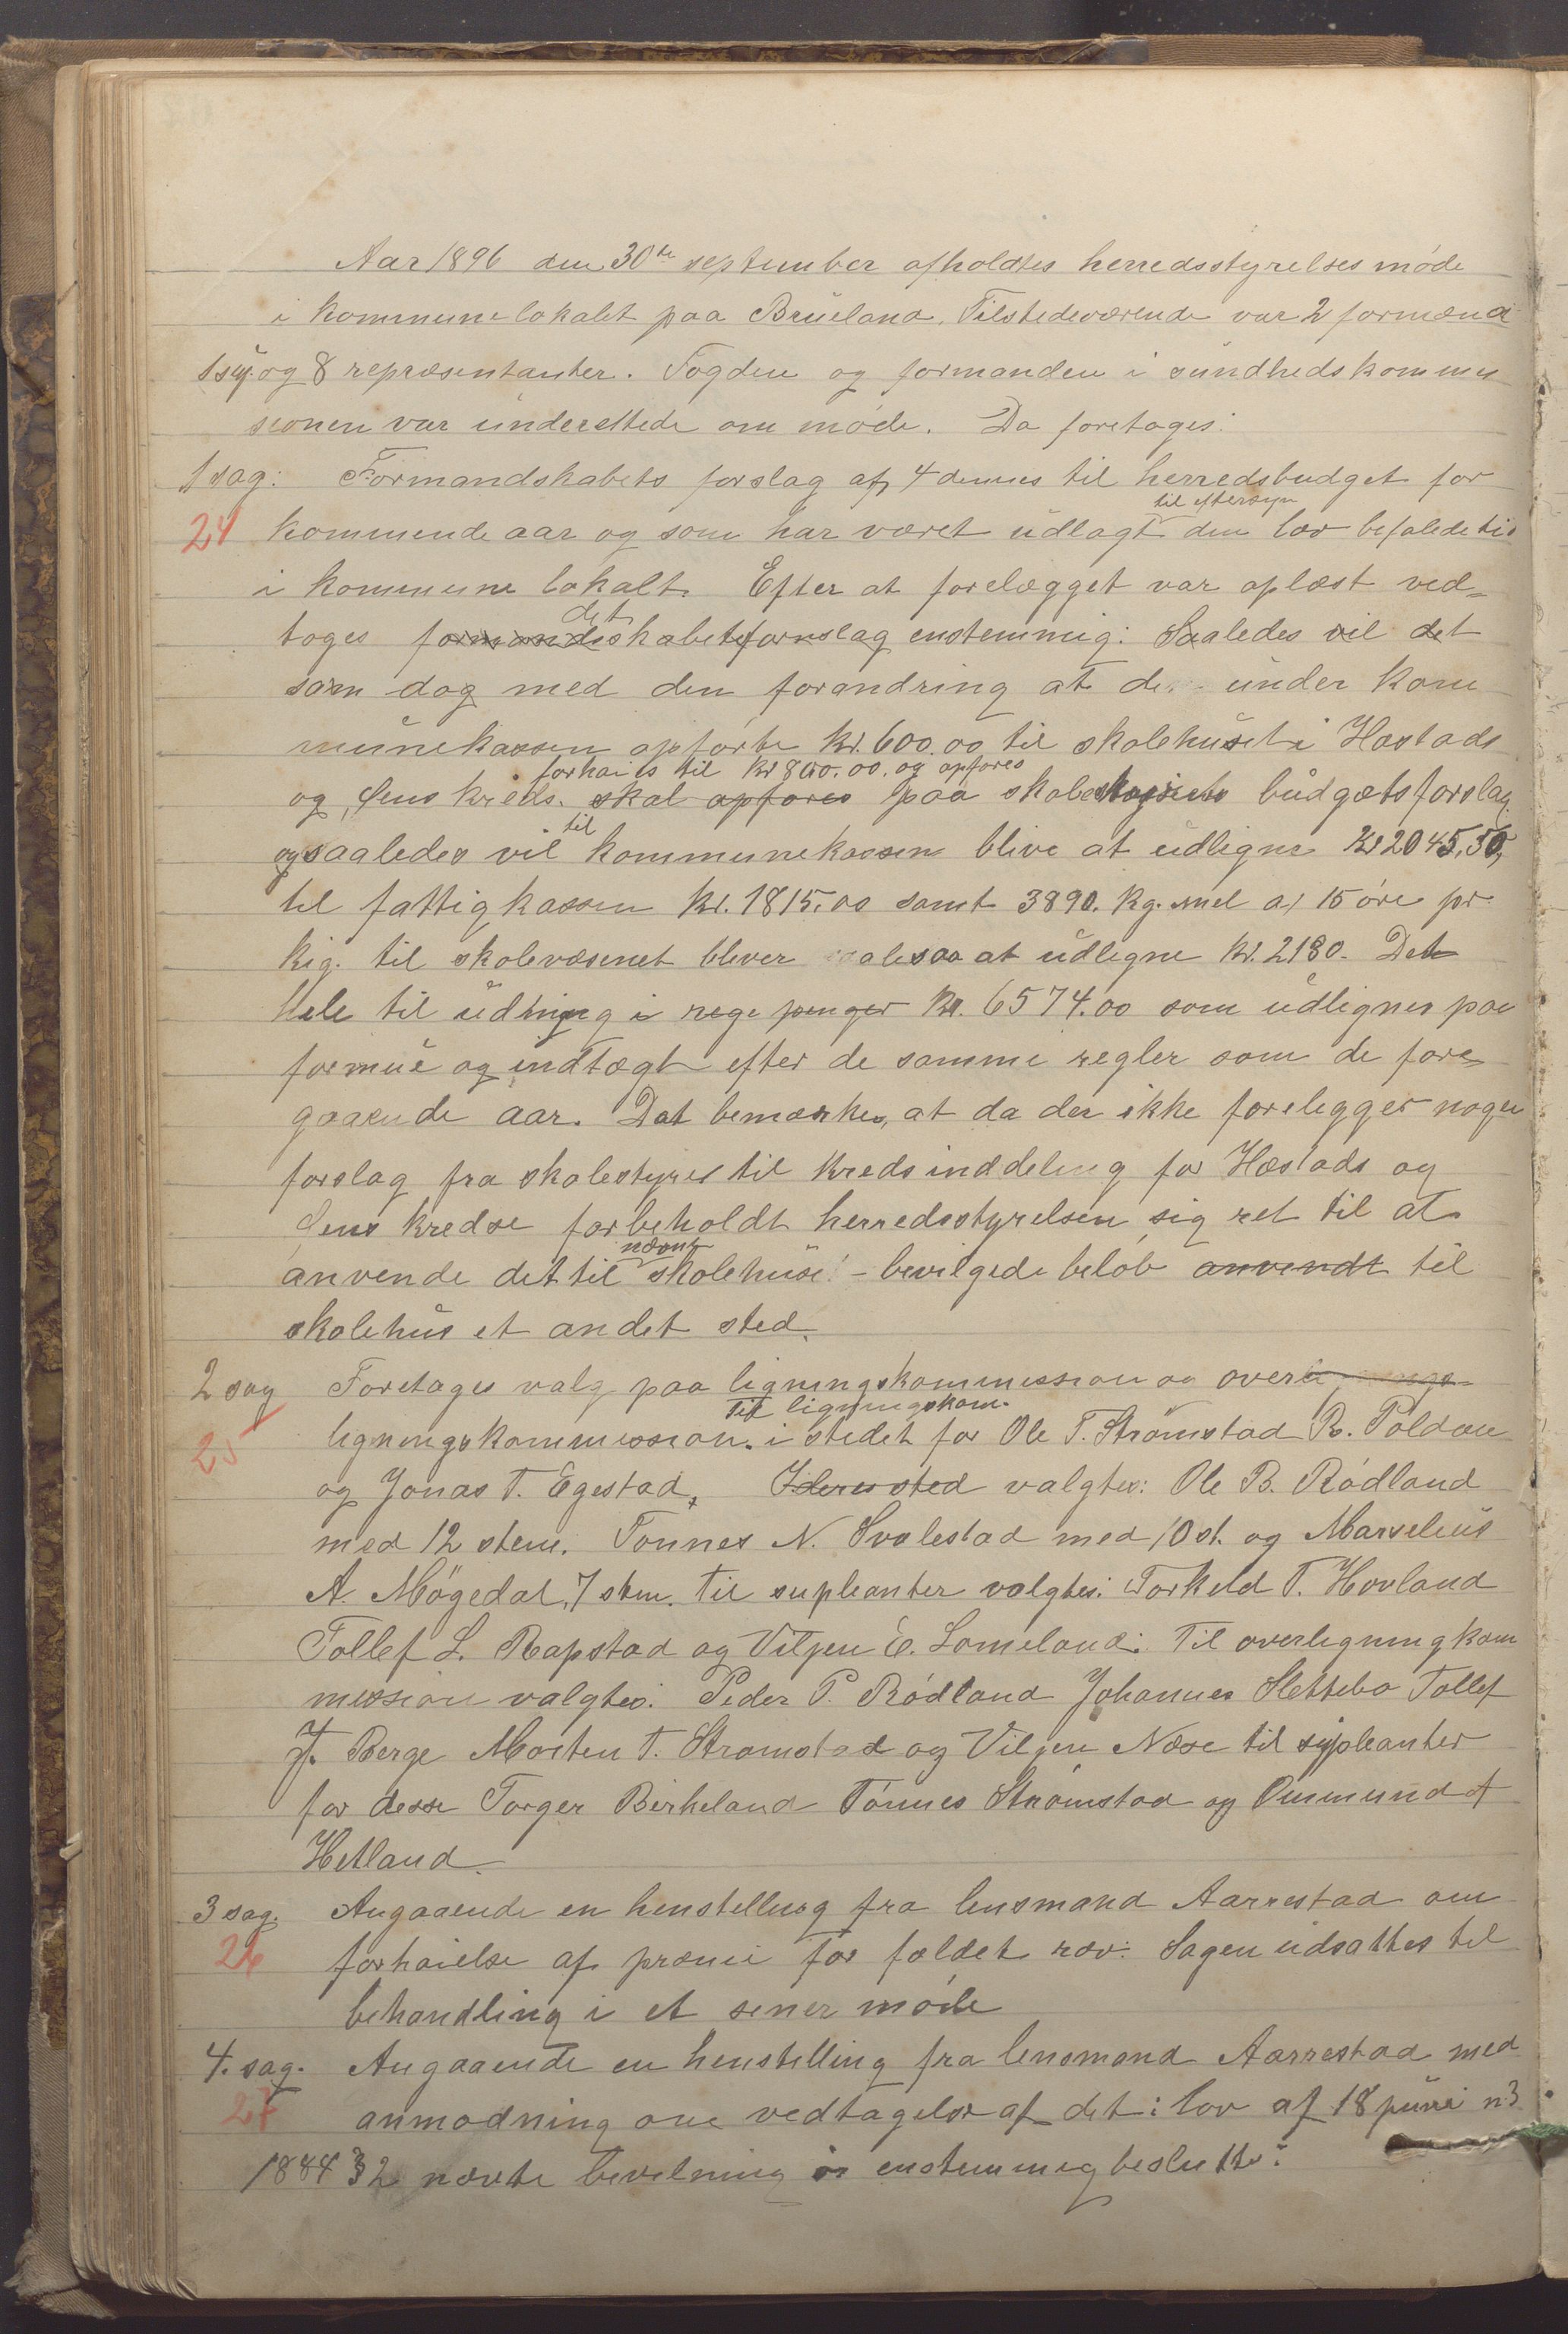 Aar 1896 den 30te september afholdtes herredsstyrelses møde
i kommunelokalet paa Brueland. Tilstedeværende var 2 formænd
1 syg og 8 repræsentanter. Fogden og formanden i sundhedskommi
sionen var underettede om møde. Da foretoges:
1 sag: Formandskabets forslag af 4 dennes til herredsbudget for
til eftersyn
24 kommende aar og som har været udlagt den lov befalede tid
i kommune lokalt. Efter at forelægget var oplæst ved=
det
toges formandskabets forslag enstemmig: Saaledes vil det
som dog med den forandring at de under kom
munekassen opførte kr. 600.00 til skolehuset i Hæstads
forhøies til kr 800.00. og opføres
og kreds. skal opføres paa skole budgætsforslag.
til
og saaledes vil kommunekassen blive at udligne Kr 2045,50,
til fattigkassen kr. 1815.00 samt 3890. kg. mel a, 15 øre pr.
kig. til skolevæsenet blever at udligne kr. 2180. Det
Hele til udligning i rege penger kr. 6574.00 som udlignes paa
formue og indtægt efter de samme regler som de fore=
gaaende aar. Det bemærkes, at da der ikke forelegger nogen
forslag fra skolestyret til kredsinddeling for Hæstads og
kredse forbeholdt herredsstyrelsen sig ret til at
nævnt
anvende det til skolehuse - bevilgede beløb anvendt til
skolehus et andet sted.
2 sag Foretages valg paa ligningskommission og over
til ligningskom.
25 ligningskommission. i stedet for Ole T. Strømstad R. Poldan
og Jonas T. Egestad. valgtes: Ole B. Rødland
med 12 stem. Tønnes N. Svalestad med 10 st. og Marselius
A. Møgedal, 7 stm. til supleanter valgtes: Torkeld T. Hovland
Tollef L. Rapstad og Viljen E. Lomeland. Til overligningkom
mission valgtes: Peder P. Rødland Johannes Slettebø Tollef
J. Berge Morten T. Strømstad og Viljen Næse til supleanter
for desse Torger Birkeland Tønnes Strømstad og Ommund A
Hetland.
3 sag. Angaaende en henstelling fra lensmand Aarrestad om
26 forhøielse af præmie for fældet ræv: Sagen udsattes til
behandling i et sener møde
4. sag. Angaaende en henstilling fra lensmand Aarrestad med
27 anmodning om vedtagelse af det i lov af 18 juni n3
1884 § 2 nævte bevilning enstemmig besluttes: